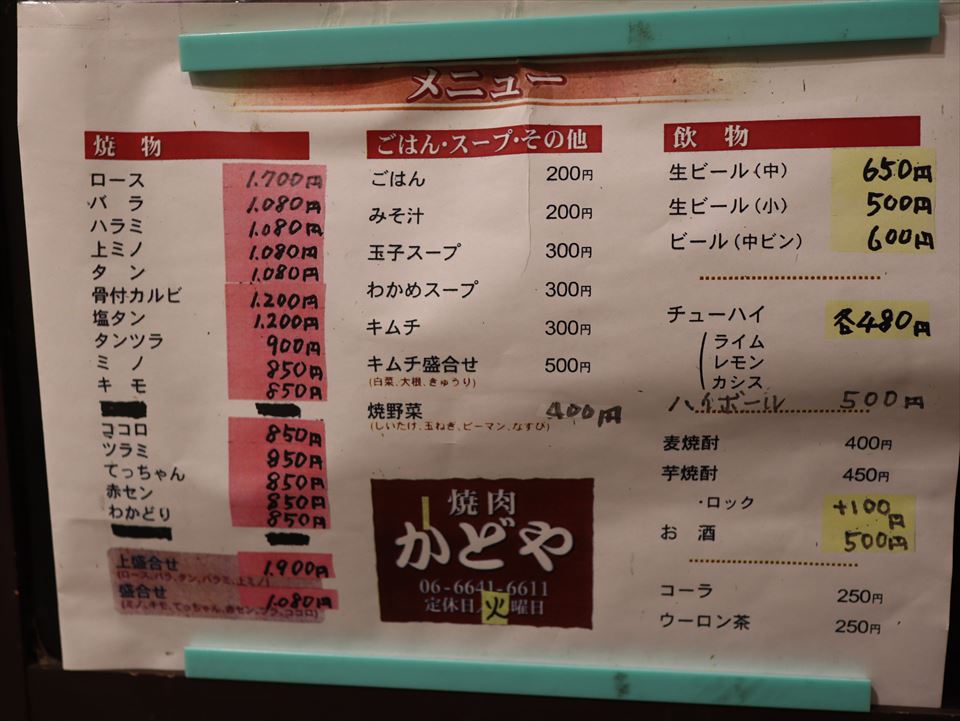 メニュー
焼物
ロース 1.700円
バラ 1.080円
ハラミ 1.080円
上ミノ 1.080円
タン 1.080円
骨付カルビ 1.200円
塩タン 1.200円
タンツラ 900円
ミノ 850円
キモ 850円
ココロ 850円
ツラミ 850円
てっちゃん 850円
赤セン 850円
わかどり 850円
上盛合せ 1.900円
(ロース、バラ、タン、ハラミ、上ミノ)
盛合せ 1.080円
ごはん・スープ・その他
ごはん 200円
みそ汁 200円
玉子スープ 300円
わかめスープ 300円
キムチ 300円
キムチ盛合せ 500円
(白菜、大根、きゅうり)
焼野菜 400円
(しいたけ、玉ねぎ、ピーマン、なすび)
焼肉
かどや
06-6641-6611
定休日 火曜日
飲物
生ビール(中) 650円
生ビール(小) 500円
ビール(中ビン) 600円
チューハイ 各480円
ライム
レモン
カシス
ハイボール 500円
麦焼酎 400円
芋焼酎 450円
・ロック +100円
お酒 500円
コーラ 250円
ウーロン茶 250円